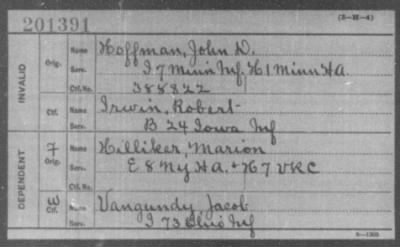 201391
(3-III-4)
INVALID
Orig.
Name Hoffman, John D.
Serv. I 7 Minn Inf. H 1 Minn HA.
Ctf. No. 388822
Ctf.
Name Irwin, Robert
Serv. B 24 Iowa Inf
DEPENDENT
Orig.
Name Hilliker, Marion
Serv. E 8 Ny HA. + H 7 VRC
Ctf. No.
W
Ctf.
Name Vangundy, Jacob
Serv. I 73 Ohio Inf